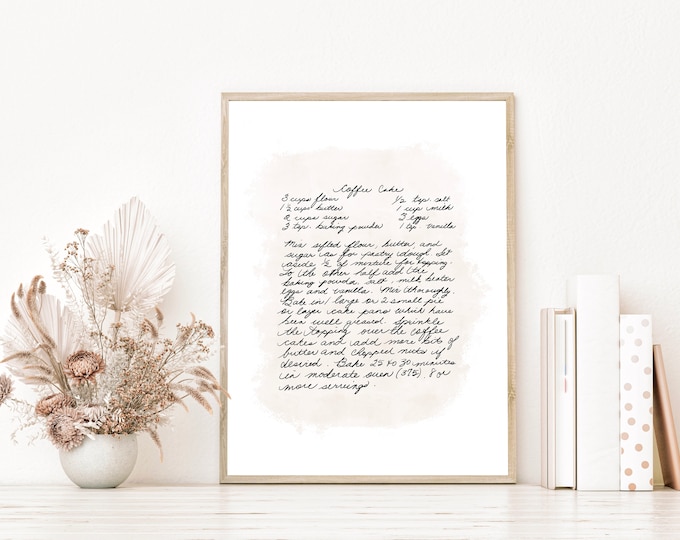 Coffee Cake
3 cups flour ½ tsp. salt
1½ cups butter 1 cup milk
2 cups sugar 3 eggs
3 tsp. baking powder 1 tsp vanilla
Mix sifted flour, butter, and
sugar as for pastry dough. Set
aside ½ of mixture for topping.
To the other half add the
baking powder, salt, milk beaten
eggs and vanilla. Mix thoroughly.
Bake in 1 large or 2 small pie
or layer cake pans which have
been well greased. Sprinkle
the topping over the coffee
cakes and add more bits of
butter and chopped nuts if
desired. Bake 25 to 30 minutes
in moderate oven (375). 8 or
more servings.